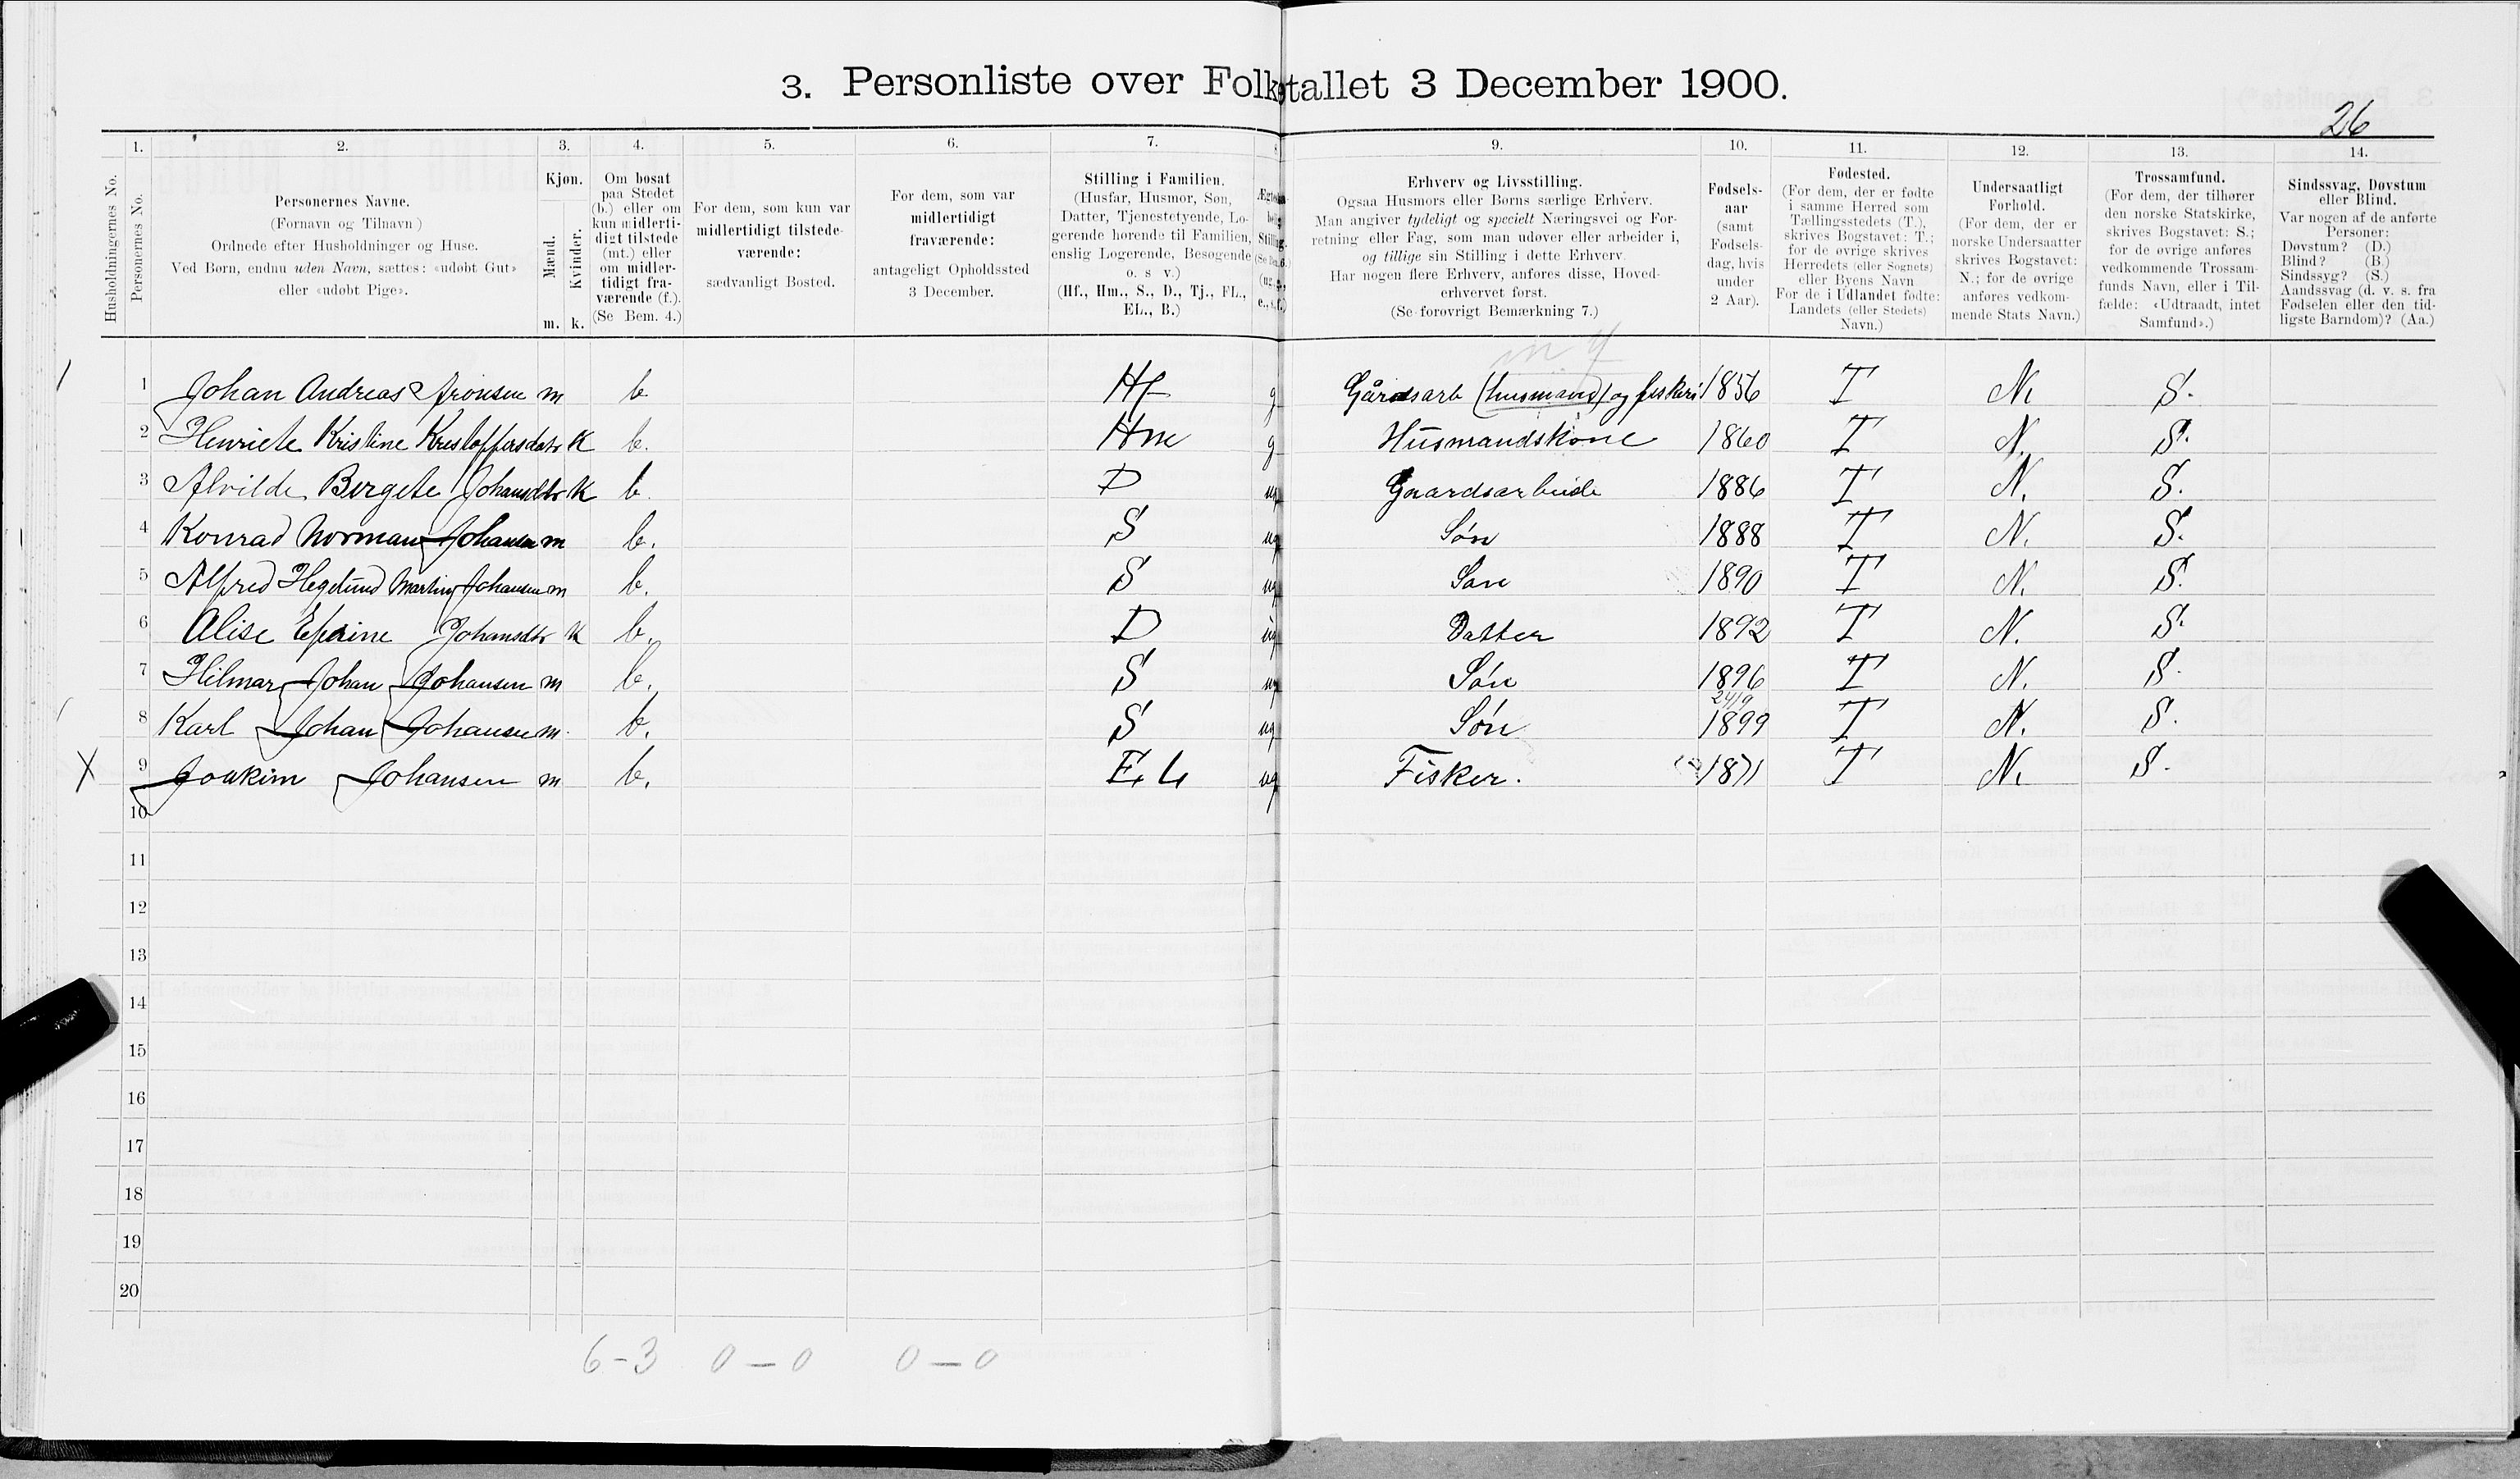 3. Personliste over Folketallet 3 December 1900.
26
1. 2. 3. 4. 5. 6. 7. 9. 10. 11. 12. 13. 14.
Husholdningernes No.
Personernes No.
Personernes Navne.
(Fornavn og Tilnavn)
Ordnede efter Husholdninger og Huse.
Ved Børn, endnu uden Navn, sættes: «udøbt Gut»
eller «udøbt Pige».
Kjøn.
Mænd.
Kvinder.
m. k.
Om bosat
paa Stedet
(b.) eller om
kun midlerti-
digt tilstede
(mt.) eller
om midler-
tidigt fra-
værende (f.).
(Se Bem. 4.)
For dem, som kun var
midlertidigt tilstede-
værende:
sædvanligt Bosted.
For dem, som var
midlertidigt
fraværende:
antageligt Opholdssted
3 December.
Stilling i Familien.
(Husfar, Husmor, Søn,
Datter, Tjenestetyende, Lo-
gerende hørende til Familien,
enslig Logerende, Besøgende
o. s v.)
(Hf., Hm., S., D., Tj., FL.,
EL., B.)
Erhverv og Livsstilling.
Ogsaa Husmors eller Børns særlige Erhverv.
Man angiver tydeligt og specielt Næringsvei og For-
retning eller Fag, som man udøver eller arbeider i,
og tillige sin Stilling i dette Erhverv.
Har nogen flere Erhverv, anføres disse, Hoved-
erhvervet først.
(Se forøvrigt Bemærkning 7.)
Fødsels-
aar
(samt
Fødsels-
dag, hvis
under
2 Aar).
Fødested.
(For dem, der er fødte
i samme Herred som
Tællingsstedets (T.),
skrives Bogstavet: T.;
for de øvrige skrives
Herredets (eller Sognets)
eller Byens Navn
For de i Udlandet fødte:
Landets (eller Stedets)
Navn.)
Undersaatligt
Forhold.
(For dem, der er
norske Undersaatter
skrives Bogstavet:
N.; for de øvrige
anføres vedkom-
mende Stats Navn.)
Trossamfund.
(For dem, der tilhører
den norske Statskirke,
skrives Bogstavet: S.;
for de øvrige anføres
vedkommende Trossam-
funds Navn, eller i Til-
fælde: «Udtraadt, intet
Samfund».)
Sindssvag, Døvstum
eller Blind.
Var nogen af de anførte
Personer:
Døvstum? (D.)
Blind? (B.)
Sindssyg? (S.)
Aandssvag (d. v. s. fra
Fødselen eller den tid-
ligste Barndom)? (Aa.)
1 Johan Andreas Aronsen m b Hf g Gårdsarb (husmand) og fiskeri 1856 T N. S.
2 Henriete Kristine Kristoffersdatr K b. Hm g Husmandskone 1860 T N. S.
3 Alvilde Bergete Johansdtr K b. D ug Gaardsarbeide 1886 T N. S.
4 Konrad Norman Johansen m b. S ug Søn 1888 T N. S.
5 Alfred Hegelund Martin Johansen m b. S ug Søn 1890 T N. S.
6 Alise Johansdtr K b. D ug Datter 1892 T N. S.
7 Hilmar Johan Johansen m b. S ug Søn 1896 T N. S.
8 Karl Johan Johansen m. b. S ug Søn 24/9 1899 T N. S.
X 9 Joakim Johansen m b. E. L ug Fisker. 1871 T N. S.
10
11
12
13
14
15
16
17
18
19
20
6 - 3 0 - 0 0 - 0